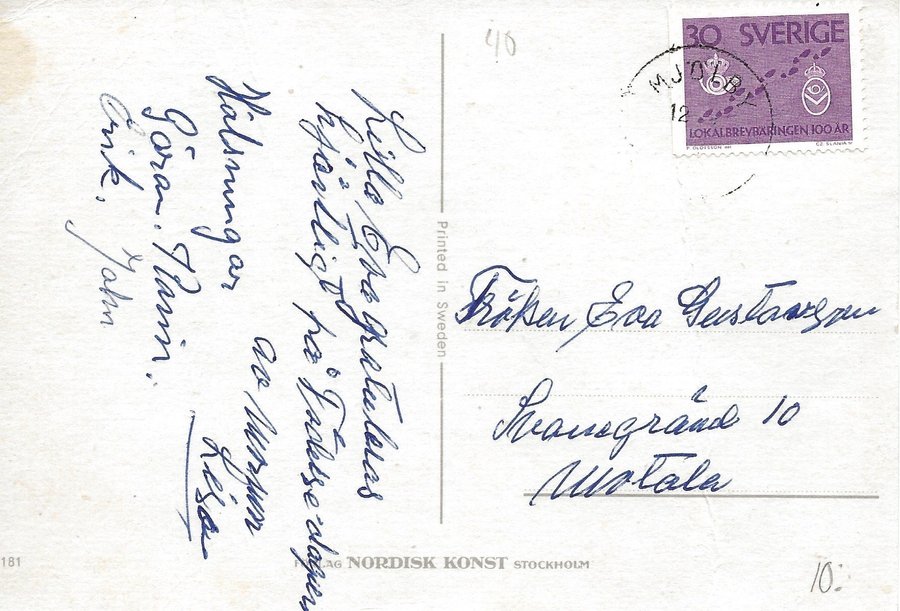 40
30 SVERIGE
LOKALBREVBÄRINGEN 100 ÅR
CZ SLANIA
MJÖLBY
12
Lilla Eva gratuleras
hjärtligt på Födelsedagen
av Mormor
Lisa
Hälsningar
Göran. Karin.
Erik. John
Printed in Sweden
Fröken Eva Gustavsson
Svanegränd 10
Motala
181
FÖRLAG NORDISK KONST STOCKHOLM
10: